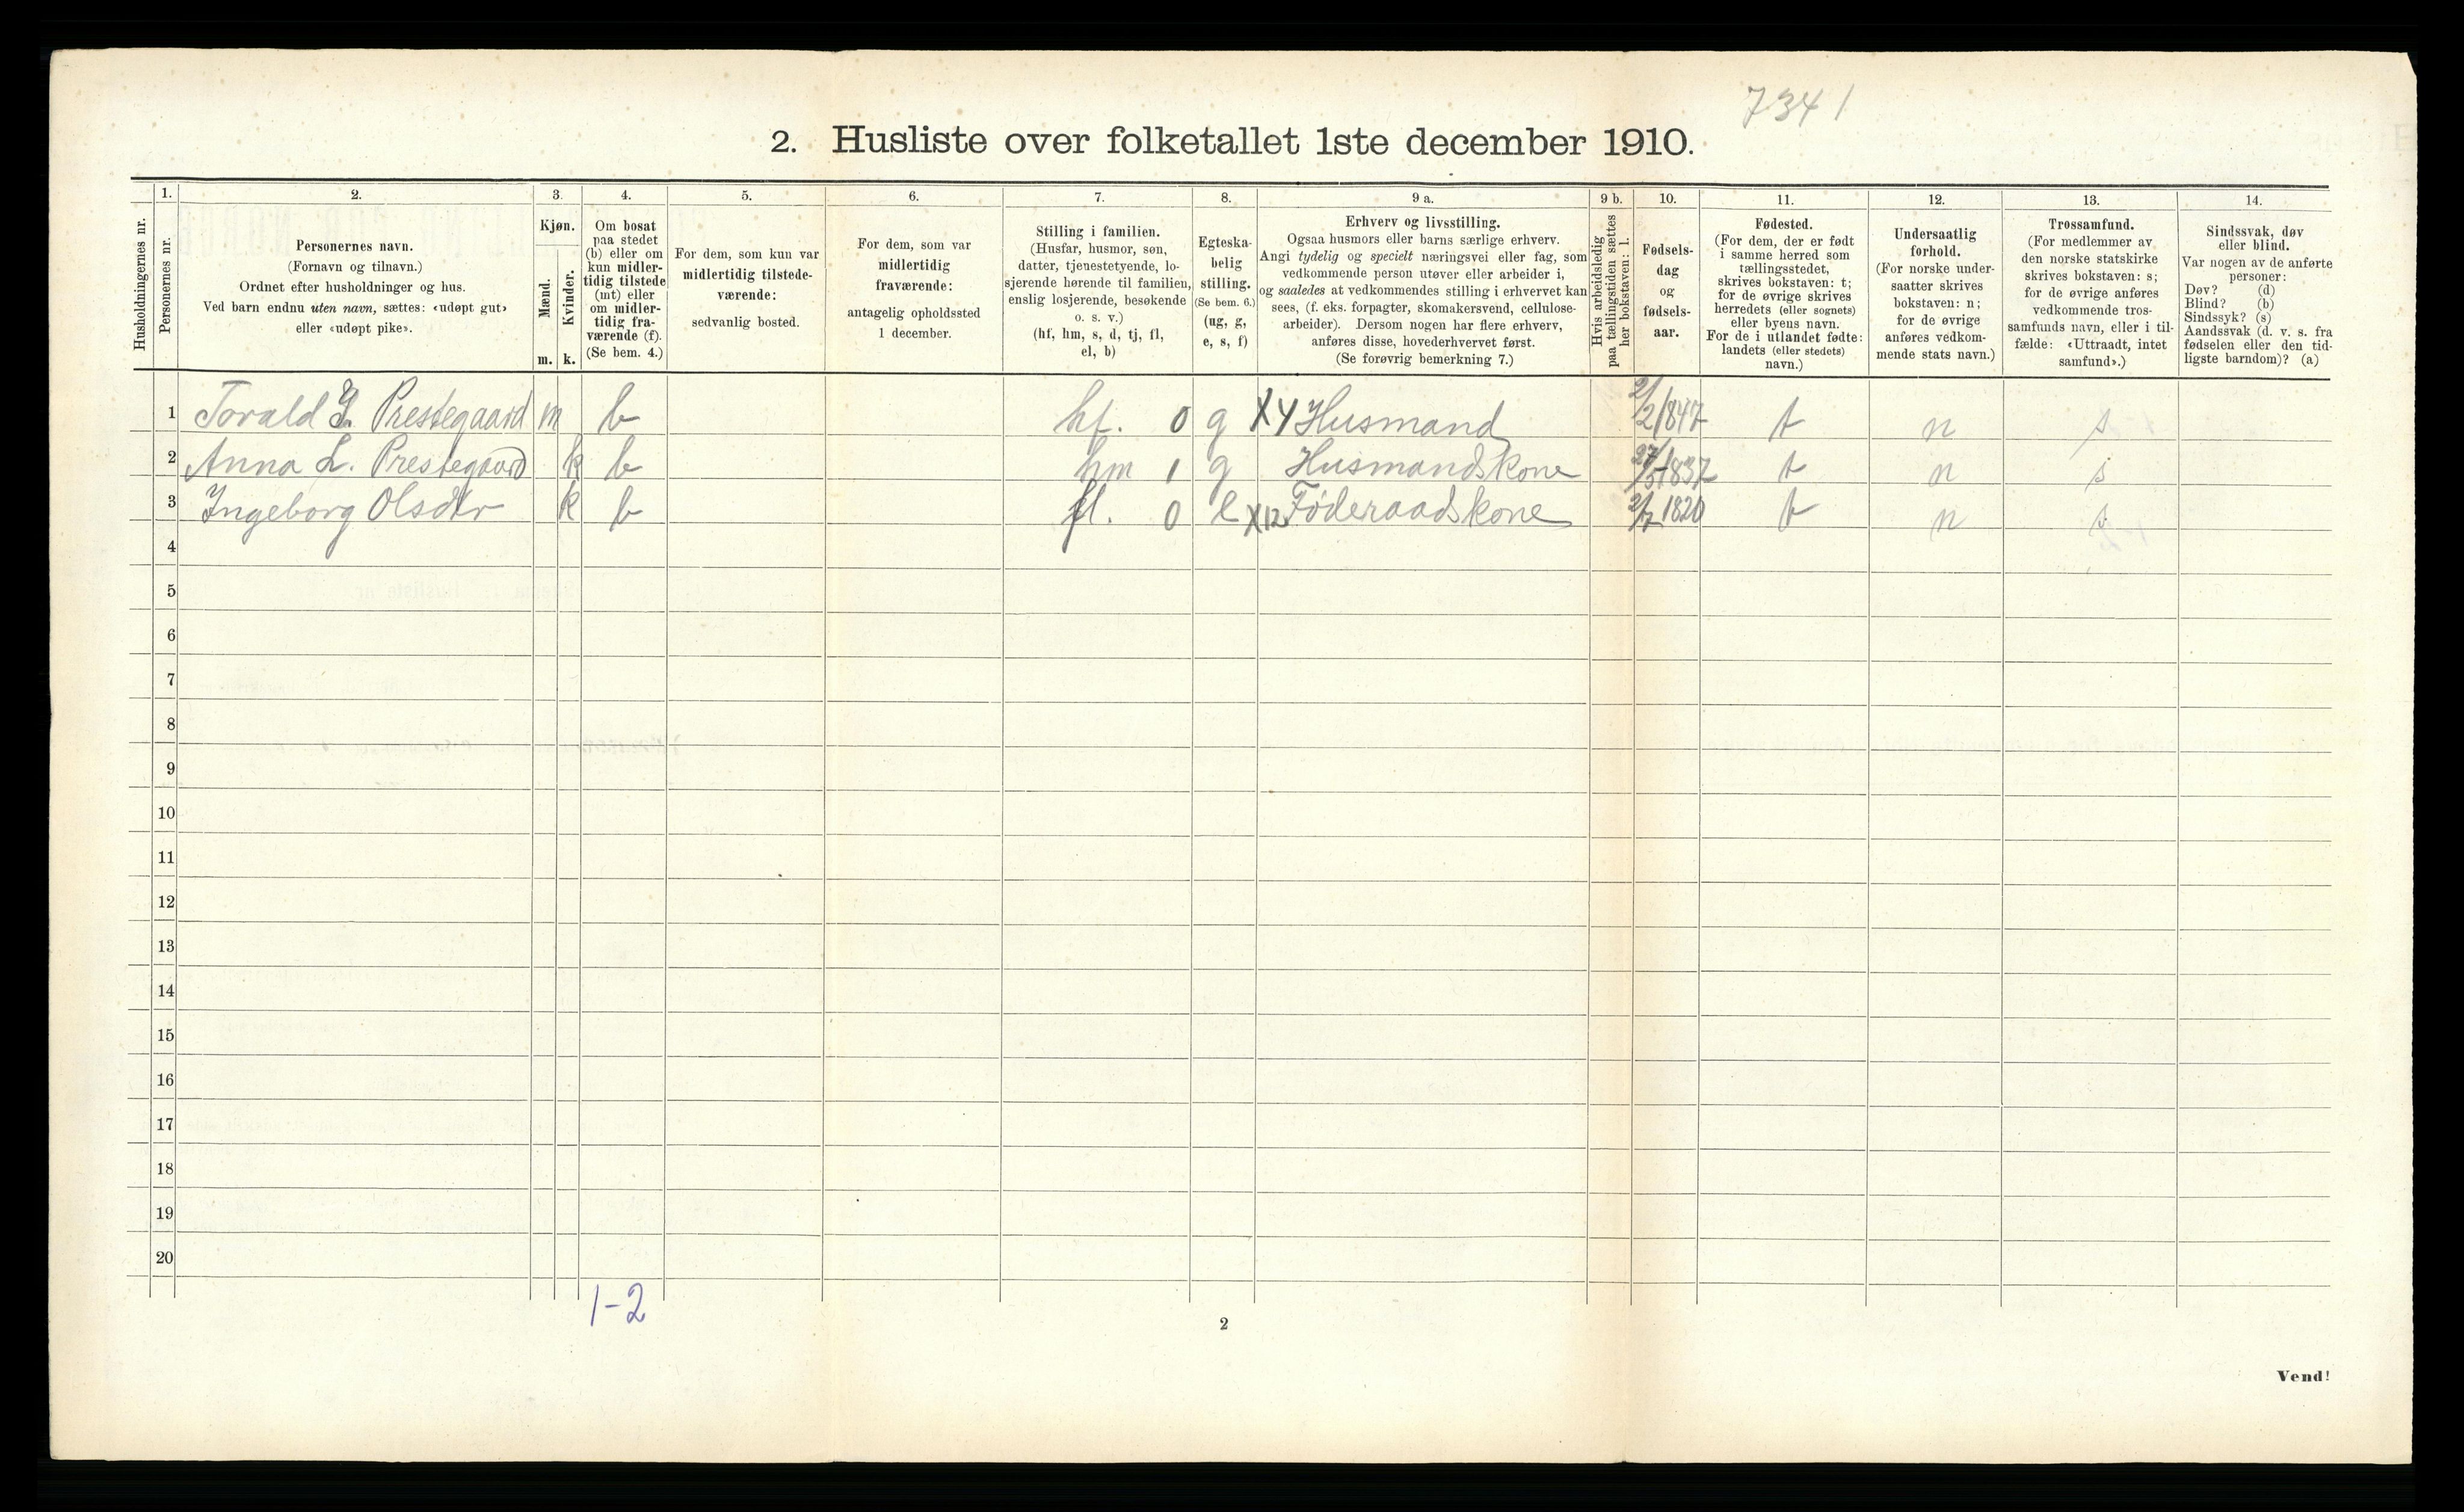 7341
2. Husliste over folketallet 1ste december 1910.
Husholdningernes nr.
1.
Personernes nr.
2.
Personernes navn.
(Fornavn og tilnavn.)
Ordnet efter husholdninger og hus.
Ved barn endnu uten navn, sættes: «udøpt gut»
eller «udøpt pike».
3.
Kjøn.
Mænd.
Kvinder.
m. k.
4.
Om bosat
paa stedet
(b) eller om
kun midler-
tidig tilstede
(mt) eller
om midler-
tidig fra-
værende (f).
(Se bem. 4.)
5.
For dem, som kun var
midlertidig tilstede-
værende:
sedvanlig bosted.
6.
For dem, som var
midlertidig
fraværende:
antagelig opholdssted
1 december.
7.
Stilling i familien.
(Husfar, husmor, søn,
datter, tjenestetyende, lo-
sjerende hørende til familien,
enslig losjerende, besøkende
o. s. v.)
(hf, hm, s, d, tj, fl,
el, b)
8.
Egteska-
belig
stilling.
(Se bem. 6.)
(ug, g,
e, s, f)
9 a.
Erhverv og livsstilling.
Ogsaa husmors eller barns særlige erhverv.
Angi tydelig og specielt næringsvei eller fag, som
vedkommende person utøver eller arbeider i,
og saaledes at vedkommendes stilling i erhvervet kan
sees, (f. eks. forpagter, skomakersvend, cellulose-
arbeider). Dersom nogen har flere erhverv,
anføres disse, hovederhvervet først.
(Se forøvrig bemerkning 7.)
9 b.
Hvis arbeidsledig
paa tællingstiden sættes
her bokstaven: l.
10.
Fødsels-
dag
og
fødsels-
aar.
11.
Fødested.
(For dem, der er født
i samme herred som
tællingsstedet,
skrives bokstaven: t;
for de øvrige skrives
herredets (eller sognets)
eller byens navn.
For de i utlandet fødte:
landets (eller stedets)
navn.)
12.
Undersaatlig
forhold.
(For norske under-
saatter skrives
bokstaven: n;
for de øvrige
anføres vedkom-
mende stats navn.)
13.
Trossamfund.
(For medlemmer av
den norske statskirke
skrives bokstaven: s;
for de øvrige anføres
vedkommende tros-
samfunds navn, eller i til-
fælde: «Uttraadt, intet
samfund».)
14.
Sindssvak, døv
eller blind.
Var nogen av de anførte
personer:
Døv? (d)
Blind? (b)
Sindssyk? (s)
Aandssvak (d. v. s. fra
fødselen eller den tid-
ligste barndom)? (a)
1 Torald G. Prestegaard m b hf. 0 g X4 Husmand 2/2 1847 t n s
2 Anna L. Prestegaard k b hm 1 g Husmandskone 27/5 1837 t n s
3 Ingeborg Olsdtr k b fl. 0 e X12 Føderaadskone 2/7 1820 t n s
4
5
6
7
8
9
10
11
12
13
14
15
16
17
18
19
20
1-2
2
Vend!